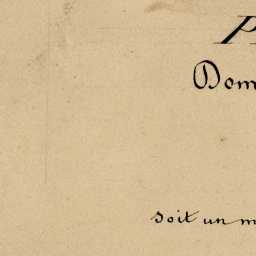 P
Dom
soit un m